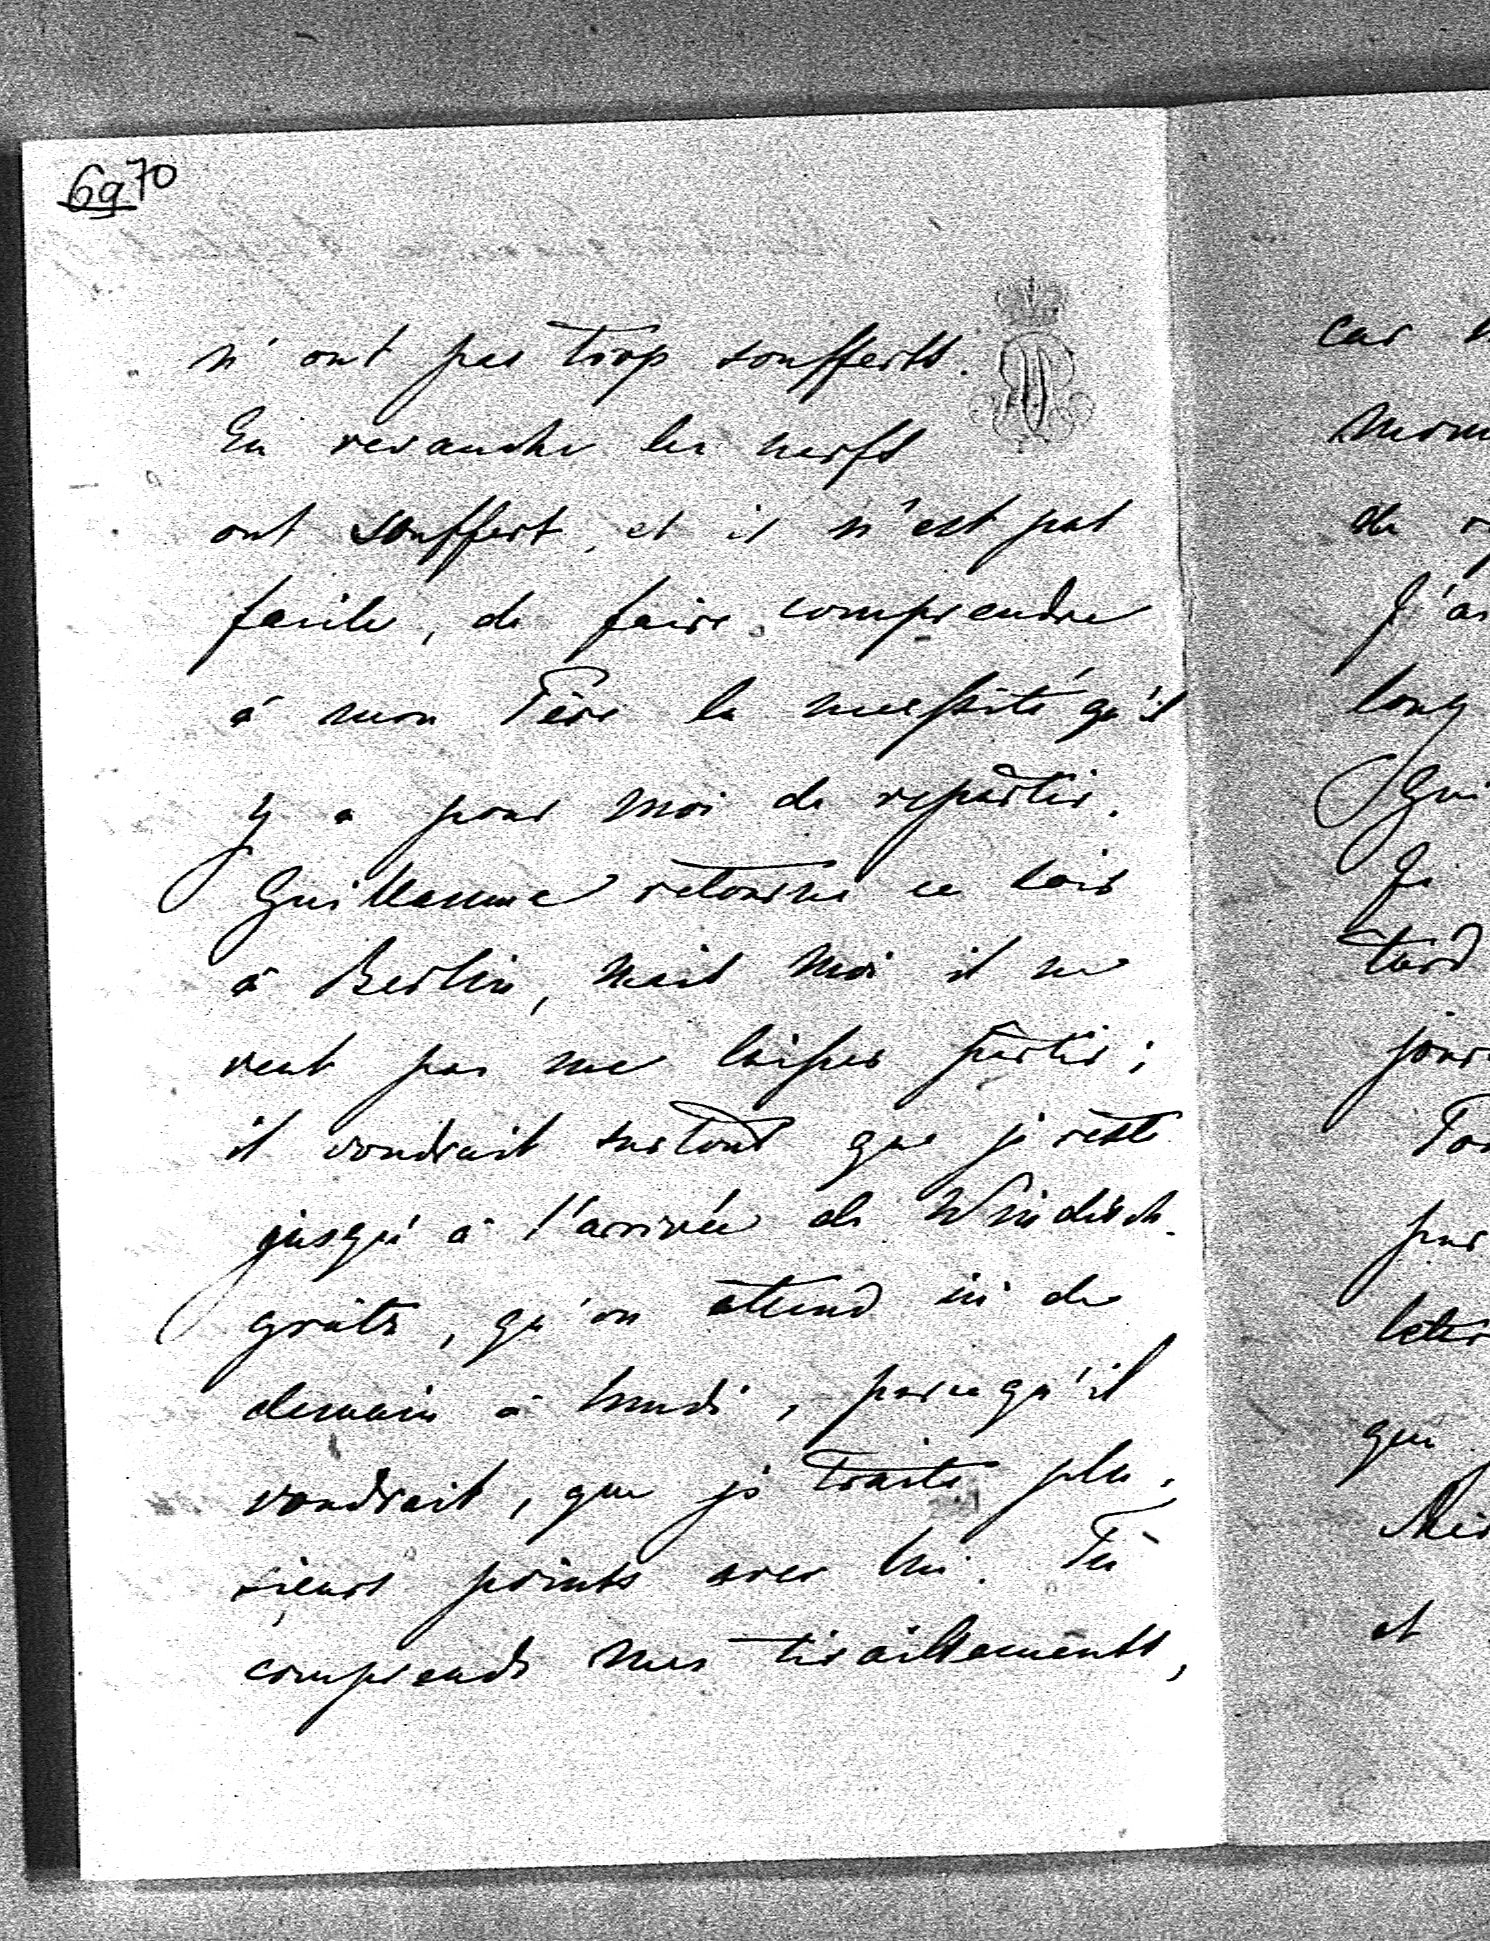 69 70
n'ont pas trop soufferts.
En revanche les nerfs
ont souffert, et il n'est pas
facile, de faire comprendre
à mon Père la necessité qu'il
y a pour moi de repartir.
Guillaume retourne ce soir
à Berlin, mais moi il ne
veut pas me laisser partir;
il voudrait surtout que je reste
jusqu'à l'arrivée de Windisch-
grätz, qu'on attend ici de
demain à lundi, parcequ'il
voudrait, que je traite plu-
sieurs points avec lui. Tu
comprends mes tiraillements,
car
de
J'ai
long
Gui
Je
tard
jour
par
qui
et